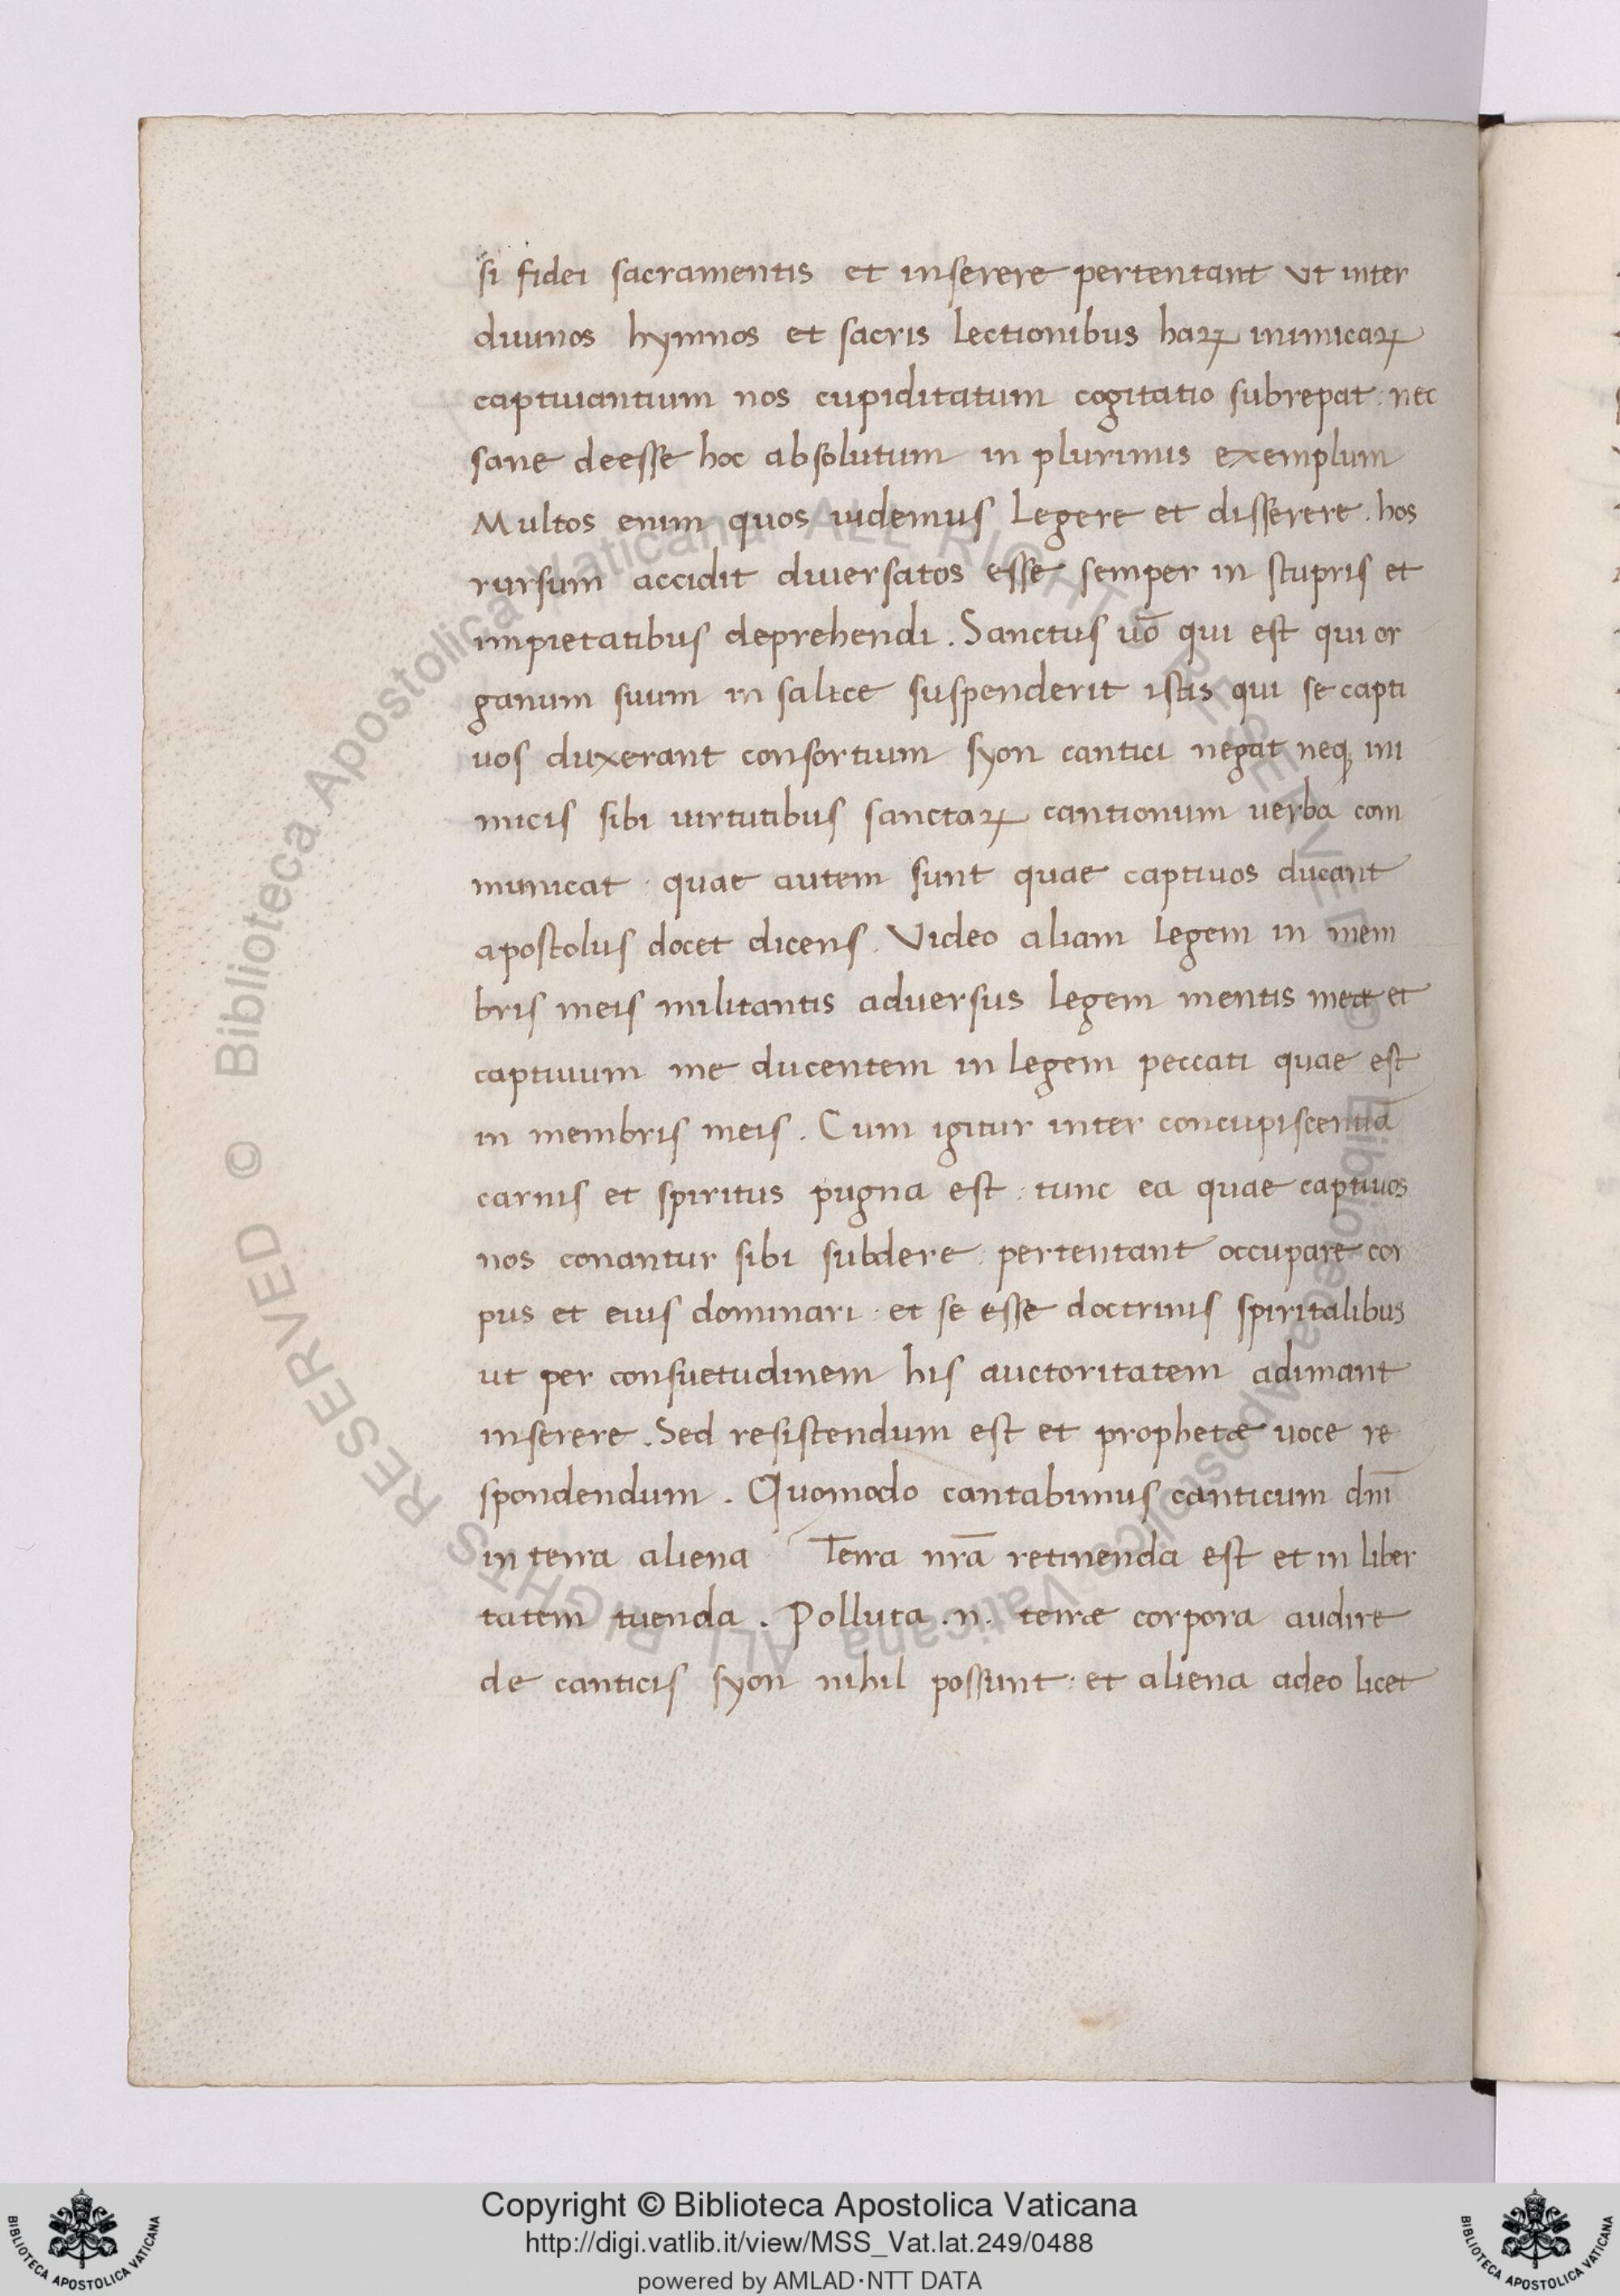 si fidei sacramentis et inserere pertentant ut inter
diuinos hymnos et sacris lectionibus haꝝ inimicaꝝ
captiuantium nos cupiditatum cogitatio subrepat : nec
sane deesse hoc absolutum in plurimis exemplum
Multos enim quos uidemus legere et disserere . hos
rursum accidit diuersatos esse semper in stupris et
impietatibus deprehendi . Sanctus uō qui est qui or
ganum suum in salice suspenderit istis qui se capti
uos duxerant consortium syon cantici negat neqꝫ ini
micis sibi uirtutibus sanctaꝝ cantionum uerba com
municat . quae autem sunt quae captiuos ducant
apostolus docet dicens . Video aliam legem in mem
bris meis militantis aduersus legem mentis meae et
captiuum me ducentem in legem peccati quae est
in membris meis . Cum igitur inter concupiscentiā
carnis et spiritus pugna est : tunc ea quae captiuos
nos conantur sibi subdere : pertentant occupare cor
pus et eius dominari : et se esse doctrinis spiritalibus
ut per consuetudinem his auctoritatem adimant
inserere . Sed resistendum est et prophetæ uoce re
spondendum . Quomodo cantabimus canticum dn̄i
in terra aliena Terra nr̄a retinenda est et in liber
tatem tuenda . Polluta .n. terræ corpora audire
de canticis syon nihil possunt : et aliena adeo licet
Biblioteca Apostolica Vaticana ALL RIGHTS RESERVED © Biblioteca Apostolica Vaticana ALL RIGHTS RESERVED ©
Copyright © Biblioteca Apostolica Vaticana
http://digi.vatlib.it/view/MSS_Vat.lat.249/0488
powered by AMLAD·NTT DATA
BIBLIOTECA APOSTOLICA VATICANA
BIBLIOTECA APOSTOLICA VATICANA